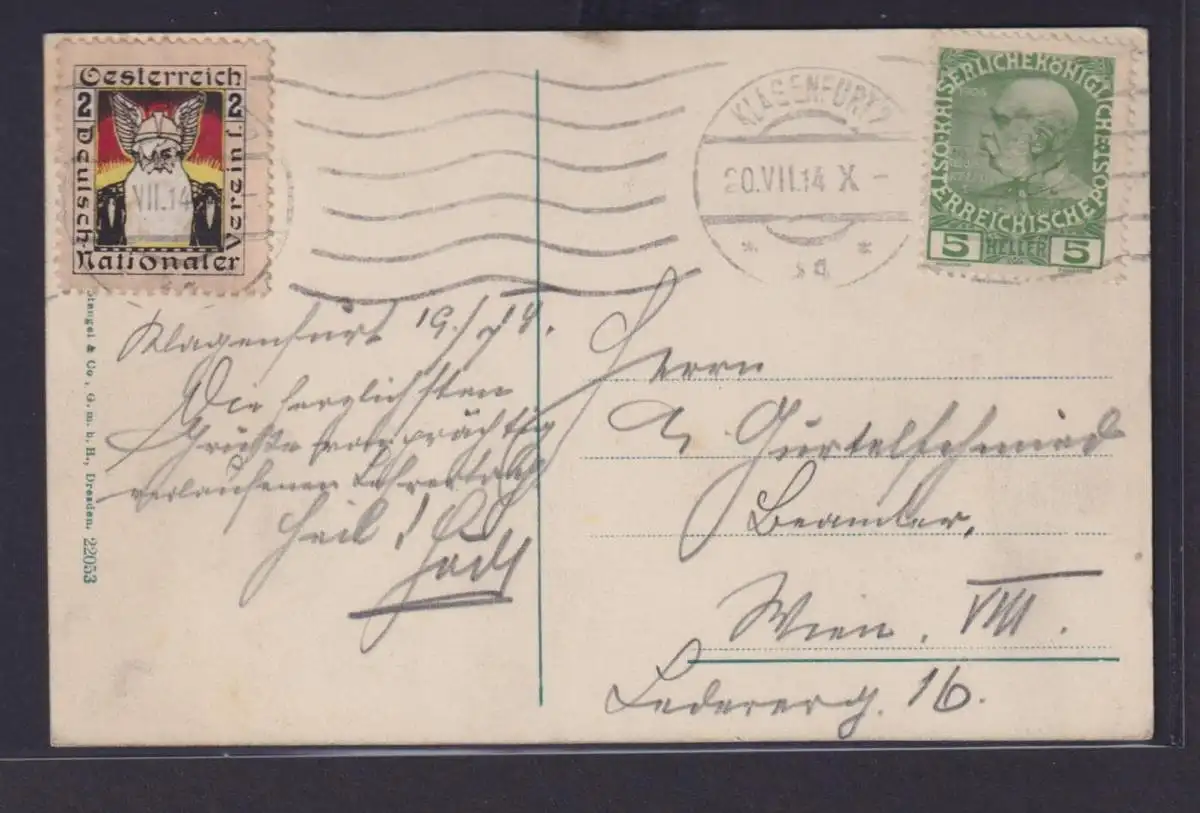 Oesterreich
2 2
Deutsch-
Nationaler
Verein f.
VII.14
KLAGENFURT 2
20.VII.14 X -
* *
KAISERLICHE KÖNIGLICHE
ÖSTERREICHISCHE POST
5 HELLER 5
Klagenfurt 19./
Die herzlichsten
Grüße vom prächtig
verlaufenen Lehrertag
Heil!
Herrn
Gürtelschmied
Beamter,
Wien. VIII.
Lederерg. 16.
Stengel & Co., G. m. b. H., Dresden. 22053